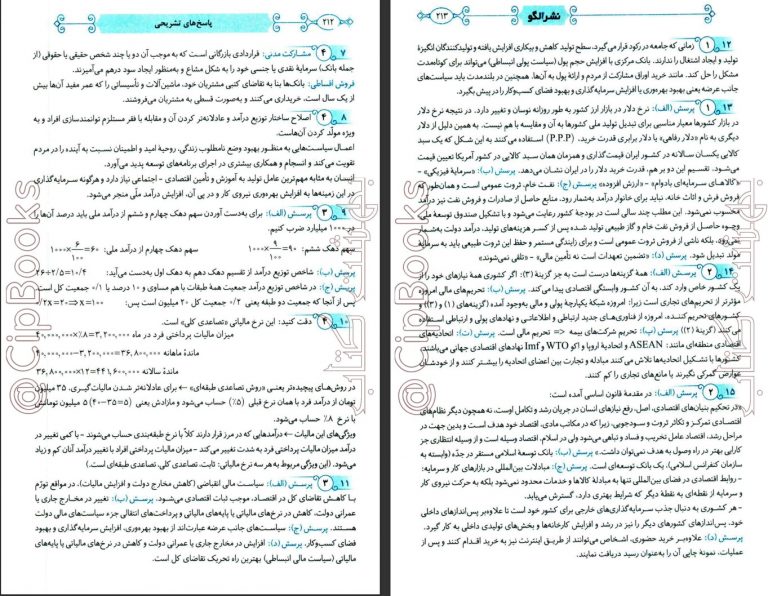 ۲۱۲
پاسخ‌های تشریحی
۷ ۴ مشارکت مدنی: قراردادی بازرگانی است که به موجب آن دو یا چند شخص حقیقی یا حقوقی (از
جمله بانک) سرمایهٔ نقدی یا جنسی خود را به شکل مشاع و به‌منظور ایجاد سود درهم می‌آمیزند.
فروش اقساطی: بانک‌ها بنا به تقاضای کتبی مشتریان خود، ماشین‌آلات و تأسیساتی را که عمر مفید آن‌ها بیش
از یک سال است، خریداری می‌کنند و به‌صورت قسطی به مشتریان می‌فروشند.
۸ ۴ اصلاح ساختار توزیع درآمد و عادلانه‌تر کردن آن و مقابله با فقر مستلزم توانمندسازی افراد و به
ویژه مولّد کردن آن‌هاست.
اعمال سیاست‌هایی به منظور بهبود وضع نامطلوب زندگی، روحیهٔ امید و اطمینان نسبت به آینده را در مردم
تقویت می‌کند و انسجام و همکاری بیشتری در اجرای برنامه‌های توسعه پدید می‌آورد.
انسان به مثابه مهم‌ترین عامل تولید به آموزش و تأمین اقتصادی - اجتماعی نیاز دارد و هرگونه سرمایه‌گذاری
در این زمینه‌ها به افزایش بهره‌وری نیروی کار و در پی آن، افزایش درآمد ملّی منجر می‌شود.
۹ ۳ پرسش (الف): برای به‌دست آوردن سهم دهک چهارم و ششم از درآمد ملی باید درصد آن‌ها را
در ۱۰۰۰ میلیارد ضرب کنیم.
سهم دهک ششم: ۹۰=۹/۱۰۰×۱۰۰۰ سهم دهک چهارم از درآمد ملی: ۶۰=۶/۱۰۰×۱۰۰۰
پرسش (ب): شاخص توزیع درآمد از تقسیم دهک دهم به دهک اول به‌دست می‌آید: ۲۶÷۲/۵=۱۰/۴
پرسش (ج): در شاخص توزیع درآمد جمعیت همهٔ طبقات با هم مساوی و ۱۰ درصد یا ۰/۱ جمعیت کل است.
پس از آنجا که جمعیت دو طبقه یعنی ۰/۲ جمعیت کل ۲۰ میلیون است پس: ۰/۲x=۲۰⇒x=۱۰۰
۱۰ ۴ دقت کنید: این نرخ مالیاتی «تصاعدی کلی» است.
میزان مالیات پرداختی فرد در ماه ۴۰,۰۰۰,۰۰۰×٪۸=۳,۲۰۰,۰۰۰
ماندهٔ ماهانه ۴۰,۰۰۰,۰۰۰-۳,۲۰۰,۰۰۰=۳۶,۸۰۰,۰۰۰
ماندهٔ سالانه ۳۶,۸۰۰,۰۰۰×۱۲=۴۴۱,۶۰۰,۰۰۰
در روش‌های پیچیده‌تر یعنی «روش تصاعدی طبقه‌ای» ← برای عادلانه‌تر شدن مالیات‌گیری، ۳۵ میلیون
تومان از درآمد فرد با همان نرخ قبلی (۵٪) حساب می‌شود و مازادش یعنی (۵=۳۵-۴۰) ۵ میلیون تومانش
با نرخ ۸٪ حساب می‌شود.
ویژگی‌های این مالیات ← درآمدهایی که در مرز قرار دارند کلاً با نرخ طبقه‌بندی حساب می‌شوند - با کمی تغییر در
درآمد میزان مالیات پرداختی فرد به شدت تغییر می‌کند - میزان مالیات پرداختی افراد با تغییر درآمد آنان کم و زیاد
می‌شود. (این ویژگی مربوط به هر سه نرخ مالیاتی: ثابت، تصاعدی کلی، تصاعدی طبقه‌ای است.)
۱۱ ۳ پرسش (الف): سیاست مالی انقباضی (کاهش مخارج دولت و افزایش مالیات)، در مواقع تورّم
با کاهش تقاضای کل در اقتصاد، موجب ثبات اقتصادی می‌شود. پرسش (ب): تغییر در مخارج جاری یا
عمرانی دولت، کاهش در نرخ‌های مالیاتی یا پایه‌های مالیاتی و پرداخت‌های انتقالی جزء سیاست‌های مالی دولت
هستند. پرسش (ج): سیاست‌های جانب عرضه عبارت‌اند از بهبود بهره‌وری، افزایش سرمایه‌گذاری و بهبود
فضای کسب‌وکار. پرسش (د): افزایش در مخارج جاری یا عمرانی دولت و کاهش در نرخ‌های مالیاتی یا پایه‌های
مالیاتی (سیاست مالی انبساطی) بهترین راه تحریک تقاضای کل است.
@CipBooks
نشر الگو
۲۱۳
۱۲ ۱ زمانی که جامعه در رکود قرار می‌گیرد، سطح تولید کاهش و بیکاری افزایش یافته و تولیدکنندگان انگیزهٔ
تولید و ایجاد اشتغال را ندارند. بانک مرکزی با افزایش حجم پول (سیاست پولی انبساطی) می‌تواند برای کوتاه‌مدت
مشکل را حل کند. مانند خرید اوراق مشارکت از مردم و ارائهٔ پول به آن‌ها. همچنین در بلندمدت باید سیاست‌های
جانب عرضه یعنی بهبود بهره‌وری یا افزایش سرمایه‌گذاری و بهبود فضای کسب‌وکار را در پیش بگیرد.
۱۳ ۱ پرسش (الف): نرخ دلار در بازار ارز کشور به طور روزانه نوسان و تغییر دارد. در نتیجه نرخ دلار
در بازار کشورها معیار مناسبی برای تبدیل تولید ملی کشورها به آن و مقایسه با هم نیست. به همین دلیل از دلار
دیگری به نام «دلار رفاهی» یا دلار برابری قدرت خرید، (P.P.P) استفاده می‌کنند به این شکل که یک سبد
کالایی یکسان سالانه در کشور ایران قیمت‌گذاری و همزمان همان سبد کالایی در کشور آمریکا تعیین قیمت
می‌شود. تقسیم این دو بر هم، قدرت خرید دلار را در ایران نشان می‌دهد. پرسش (ب): «سرمایهٔ فیزیکی» -
«کالاهای سرمایه‌ای بادوام» - «ارزش افزوده» پرسش (ج): نفت خام، ثروت عمومی است و همان‌طور که
فروش فرش و اثاث خانه، نباید برای خانوار درآمد به‌شمار رود، منابع حاصل از صادرات و فروش نفت نیز درآمد
محسوب نمی‌شود. این مطلب چند سالی است در بودجهٔ کشور رعایت می‌شود و با تشکیل صندوق توسعهٔ ملی
وجوه حاصل از فروش نفت خام و گاز طبیعی تولید شده پس از کسر هزینه‌های تولید، درآمد دولت به‌شمار
نمی‌رود، بلکه ناشی از فروش ثروت عمومی است و برای زایندگی مستمر و حفظ این ثروت طبیعی باید به سرمایهٔ
مولد تبدیل شود. پرسش (د): «تضمین تعهدات است نه تأمین مالی» - «تلقی نمی‌شوند»
۱۴ ۲ پرسش (الف): همهٔ گزینه‌ها درست است به جز گزینهٔ (۳): اگر کشوری همهٔ نیازهای خود را از
یک کشور خاص وارد کند، به آن کشور وابستگی اقتصادی پیدا می‌کند. پرسش (ب): تحریم‌های مالی امروزه
مؤثرتر از تحریم‌های تجاری است زیرا: امروزه شبکهٔ یکپارچهٔ پولی و مالی به‌وجود آمده (گزینه‌های (۱) و (۳)) و
کشورهای تحریم کننده، امروزه از فناوری‌های جدید ارتباطی و اطلاعاتی و نهادهای پولی و ارتباطی استفاده
می‌کنند (گزینهٔ (۲)) پرسش (پ): تحریم شرکت‌های بیمه <= تحریم مالی است. پرسش (ت): اتحادیه‌های
اقتصادی منطقه‌ای مانند: ASEAN و اتحادیهٔ اروپا و اکو WTO و Imf نهادهای اقتصادی جهانی می‌باشند.
کشورها با تشکیل اتحادیه‌ها تلاش می‌کنند مبادله و تجارت بین اعضای اتحادیه را بیشتر کنند و از خودشان
عوارض گمرکی نگیرند یا مانع‌های تجاری را کم کنند.
۱۵ ۲ پرسش (الف): در مقدمهٔ قانون اساسی آمده است:
«در تحکیم بنیان‌های اقتصادی، اصل، رفع نیازهای انسان در جریان رشد و تکامل اوست، نه همچون دیگر نظام‌های
اقتصادی تمرکز و تکاثر ثروت و سودجویی، زیرا که در مکاتب مادی، اقتصاد خود هدف است و بدین جهت در
مراحل رشد، اقتصاد عامل تخریب و فساد و تباهی می‌شود ولی در اسلام، اقتصاد وسیله است و از وسیله انتظاری جز
کارایی بهتر در راه وصول به هدف نمی‌توان داشت.» پرسش (ب): بانک توسعهٔ اسلامی مستقر در جدّه (وابسته به
سازمان کنفرانس اسلامی)، یک بانک توسعه‌ای است. پرسش (ج): مبادلات بین‌المللی در بازارهای کار و سرمایه:
- روابط اقتصادی در فضای بین‌المللی تنها به مبادلهٔ کالاها و خدمات محدود نمی‌شود بلکه به حرکت نیروی کار
و سرمایه از نقطه‌ای به نقطهٔ دیگر که شرایط بهتری دارد، گسترش می‌یابد.
- هر کشوری به دنبال جذب سرمایه‌گذاری‌های خارجی برای کشور خود است تا علاوه‌بر پس‌اندازهای داخلی
خود، پس‌اندازهای کشورهای دیگر را نیز در رشد و افزایش کارخانه‌ها و بخش‌های تولیدی داخلی به کار گیرد.
پرسش (د): علاوه‌بر خرید حضوری، اشخاص می‌توانند از طریق اینترنت نیز به خرید اقدام کنند و پس از
عملیات، نمونهٔ چاپی آن را به‌عنوان رسید دریافت نمایند.
@CipBooks